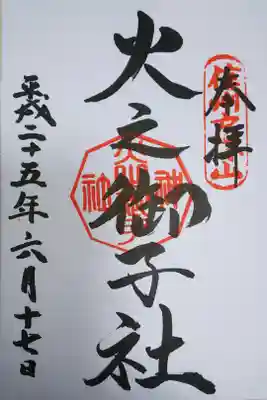 奉拝
火之御子社
平成二十五年六月十七日